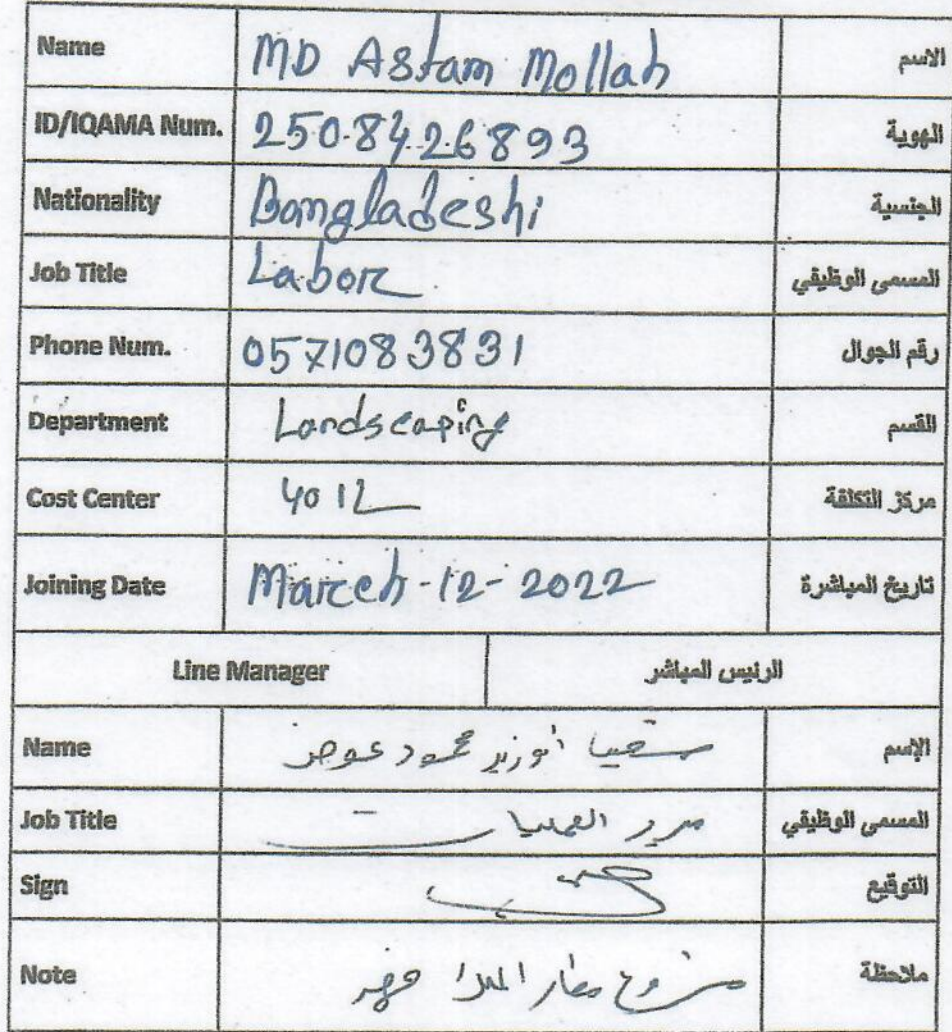 Name MD Astam Mollah الاسم
ID/IQAMA Num. 2508426893 الهوية
Nationality Bangladeshi الجنسية
Job Title Labor المسمى الوظيفي
Phone Num. 0571083831 رقم الجوال
Department Landscaping القسم
Cost Center 4012 مركز التكلفة
Joining Date March-12-2022 تاريخ المباشرة
Line Manager الرئيس المباشر
Name أبوزيد محمود عوض الإسم
Job Title مدير العمليات المسمى الوظيفي
Sign التوقيع
Note مشروع مطار الملك فهد ملاحظة